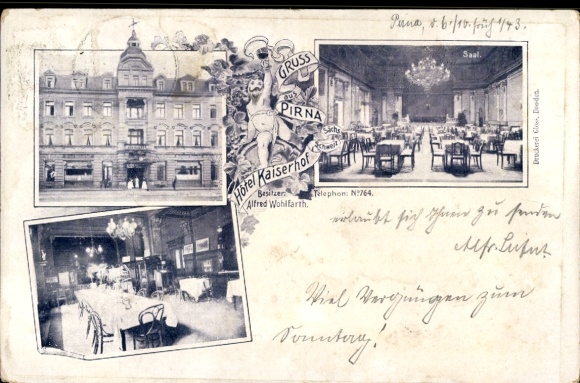 Pirna, d. 6./10. früh 1/43.
Saal.
GRUSS
aus
PIRNA
Sächs.
Schweiz
Hôtel Kaiserhof
Besitzer:
Alfred Wohlfarth.
Telephon: No 764.
Druckerei Glöss, Dresden.
erlaubt sich Ihnen zu senden
Viel Vergnügen zum
Sonntag!